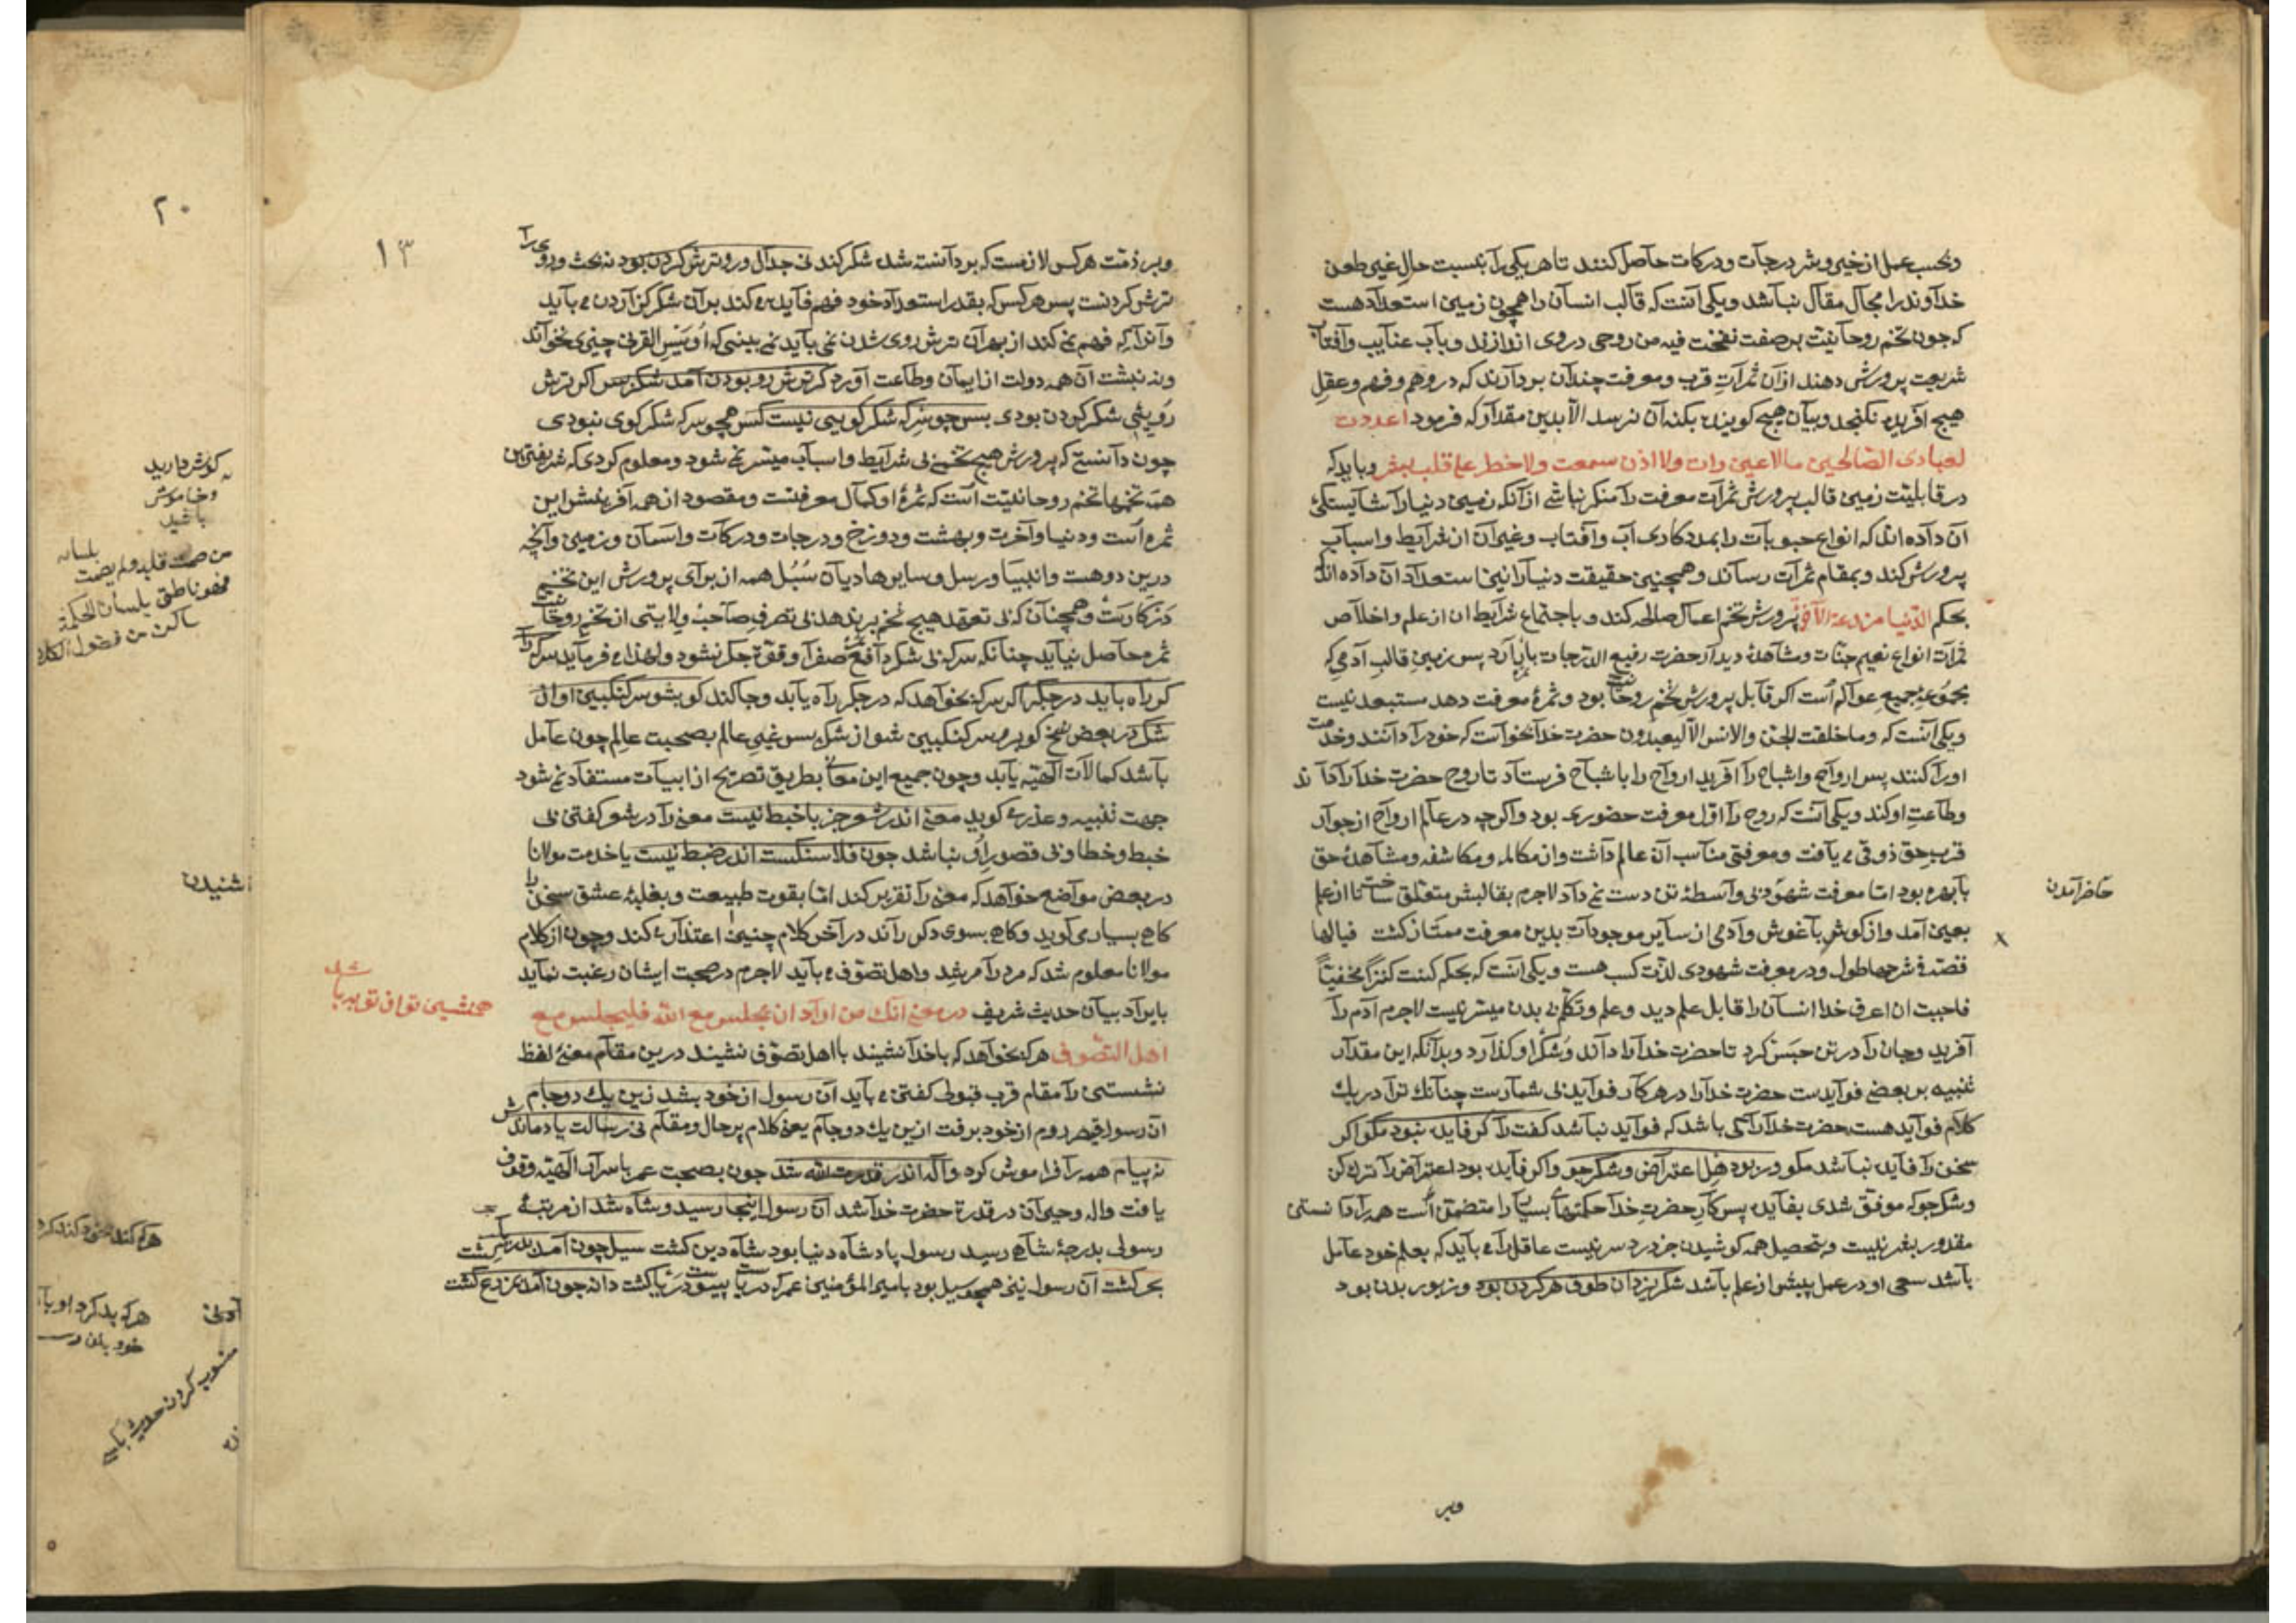 وبحسب عمل از خير وشر درجات ودركات حاصل كنند تا هر يكى را بنسبت حال غير طعن
خداوند را مجال مقال نباشد ويكى آنست كه قالب انسان را همچون زمين استعداد هست
كه چون تخم روحانيت بر صفت نفخت فيه من روحى در وى اندازند وبآب عنايت وآفتاب
شريعت پرورش دهند از آن ثمرات قرب ومعرفت چندان بردارند كه در وهم وفهم وعقل
هيچ آفريده نكنجد وبيان هيچ كوينده بكنه آن نرسد الا بدين مقدار كه فرمود اعددت
لعبادى الصالحين ما لا عين رات ولا اذن سمعت ولا خطر على قلب بشر وبايد كه
در قابليت زمين قالب پرورش ثمرات معرفت را منكر نباشى از آنكه زمين دنيا را شايستكى
آن داده اند كه انواع حبوبات را بمددكارى آب وآفتاب وغير آن از شرايط واسباب
پرورش كند وبمقام ثمرات رساند وهمچنين حقيقت دنيا را نيز استعداد آن داده اند
بحكم الدنيا مزرعة الآخرة پرورش تخم اعمال صالحه كند وباجتماع شرايط ان از علم واخلاص
ثمرات انواع نعيم جنات ومشاهدۀ ديدار حضرت رفيع الدرجات ببار آرد پس زمين قالب آدمى كه
مجموعۀ جميع عوالم است اكر قابل پرورش تخم روحانيت بود وثمرۀ معرفت دهد مستبعد نيست
ويكى آنست كه وما خلقت الجن والانس الا ليعبدون حضرت خدا خواست كه خود را دانند وخدمت
اورا كنند پس ارواح واشباح را آفريد ارواح را باشباح فرستاد تا روح حضرت خدا را داند
وطاعت او كند ويكى آنست كه روح را اول معرفت حضورى بود واكرچه در عالم ارواح از جوار
قرب حق ذوقى مى يافت ومعرفتى مناسب آن عالم داشت واز مكالمه ومكاشفه ومشاهدۀ حق
با بهره بود اما معرفت شهودى بى واسطۀ تن دست نمى داد لاجرم بقالبش متعلق ساخت تا از علم
بعين آمد واز كوش بآغوش وآدمى از ساير موجودات بدين معرفت ممتاز كشت فيا لها
قصة فى شرحها طول ودر معرفت شهودى لذت كسب هست ويكى آنست كه بحكم كنت كنزا مخفيا
فاحببت ان اعرف خدا انسان را قابل علم ديد وعلم وتكلم بى بدن ميسر نيست لاجرم آدم را
آفريد وجان را در تن حبس كرد تا حضرت خدا را داند وشكر او كذارد وبدانكه اين مقدار
تنبيه بر بعضى فوايدست حضرت خدا را در هر كار فوايد بى شمارست چنانك ترا در يك
كلام فوايد هست حضرت خدا را كى باشد كه فوايد نباشد كفت را كر فايده نبود مكو اكر
سخن را فايده نباشد مكو ور بود هل اعتراض وشكر جو واكر فايده بود اعتراض را ترك كن
وشكر جو كه موفق شدى بفايده پس كار حضرت خدا حكمتهاى بسيار را متضمن است همه را دانستن
مقدور بشر نيست وبتحصيل همه كوشيدن جز درد سر نيست عاقل را مى بايد كه بعلم خود عامل
باشد سعى او در عمل پيشتر از علم باشد شكر يزدان طوق هر كردن بود وزبور بدن بود
حاضر آمدن
وبر
١٣
وبر ذمت هر كس لازمست كه بر دانسته شده شكر كند نى جدال ورو ترش كردن بود نه بحث وروى را
ترش كردنست پس هر كس كه بقدر استعداد خود فهم فايده مى كند بر آن شكر كزاردن مى بايد
وآنرا كه فهم نمى كند از بهر آن ترش روى شدن نمى بايد نمى بينى كه اويس القرنى چيزى نخواند
ونه نبشت آن همه دولت از ايمان وطاعت آورد كر ترش رو بودن آمد شكر وبس اكر ترش
رويى شكر كردن بودى پس چو سركه شكر كويى نيست كس همچو سركه شكر كوى نبودى
چون دانستى كه پرورش هيچ تخمى بى شرايط واسباب ميسر نمى شود ومعلوم كردى كه شريفترين
همه تخمها تخم روحانيت است كه ثمرۀ او كمال معرفتست ومقصود از همه آفرينش اين
ثمره است ودنيا وآخرت وبهشت ودوزخ ودرجات ودركات وآسمان وزمين وآنچه
درين دو هست وانبيا ورسل وساير هاديان سبل همه از براى پرورش اين تخم
در كارست وهمچنان كه بى تعهد هيچ تخم بر ندهد بى تصرف صاحب ولايتى از تخم روحانيت
ثمره حاصل نيايد چنانكه سركه بى شكر دافع صفرا وقوت جكر نشود ولهذا مى فرمايد سركه را
كر راه بايد در جكر اكر سركه خواهد كه در جكر راه يابد وجا كند كو بشو سركنكبين او از
شكر در بعض نسخ كو برو سركنكبين شو از شكر پس غير عالم بصحبت عالم چون عامل
باشد كمالات الهيه يابد وچون جميع اين معانى بطريق تصريح از ابيات مستفاد نمى شود
جهت تنبيه وعذر مى كويد معنى اندر شعر جز با خبط نيست معنى را در شعر كفتن بى
خبط وخطا وبى قصور اى نباشد چون فلاسنكست اندر ضبط نيست يا خدمت مولانا
در بعض مواضع خواهد كه معنى را تقرير كند اما بقوت طبيعت وبغلبۀ عشق سخن را
كاهى بسيار مى كويد وكاهى بسوى دكر راند در آخر كلام چنين اعتذار مى كند وچون از كلام
مولانا معلوم شد كه مرد را مرشد واهل تصوف مى بايد لاجرم در صحبت ايشان رغبت نمايد
بايراد بيان حديث شريف در معنى آنك من اراد ان يجلس مع الله فليجلس مع
اهل التصوف هر كه خواهد كه با خدا نشيند با اهل تصوف نشيند درين مقام معنى لفظ
نشستن را مقام قرب قبولى كفتن مى بايد آن رسول از خود بشد زين يك دو جام
آن رسول قيصر روم از خود برفت ازين يك دو جام يعنى كلام پر حال ومقام نى رسالت ياد ماندش
نه پيام همه را فراموش كرد واله اندر قدرت الله شد چون بصحبت عمر باسرار الهيه وقوف
يافت واله وحيران در قدرة حضرت خدا شد آن رسول اينجا رسيد وشاه شد از مرتبۀ
رسولى بدرجۀ شاهى رسيد رسول پادشاه دنيا بود شاه دين كشت سيل چون آمد بدريا
بحر كشت آن رسول نيز همچو سيل بود بامير المؤمنين عمر كه درياست پيوست دريا كشت دانه چون آمد بمزرع كشت
همنشينى تو از تو به باشد
٢٠
كوش داريد
وخاموش
باشيد
من صمت قلبه ولم يصمت لسانه
فهو ناطق بلسان الحكمة
ساكت من فضول الكلام
شنيدن
هركه بد كرد او با
خود بدان
منسوب كردن حديث بكسى